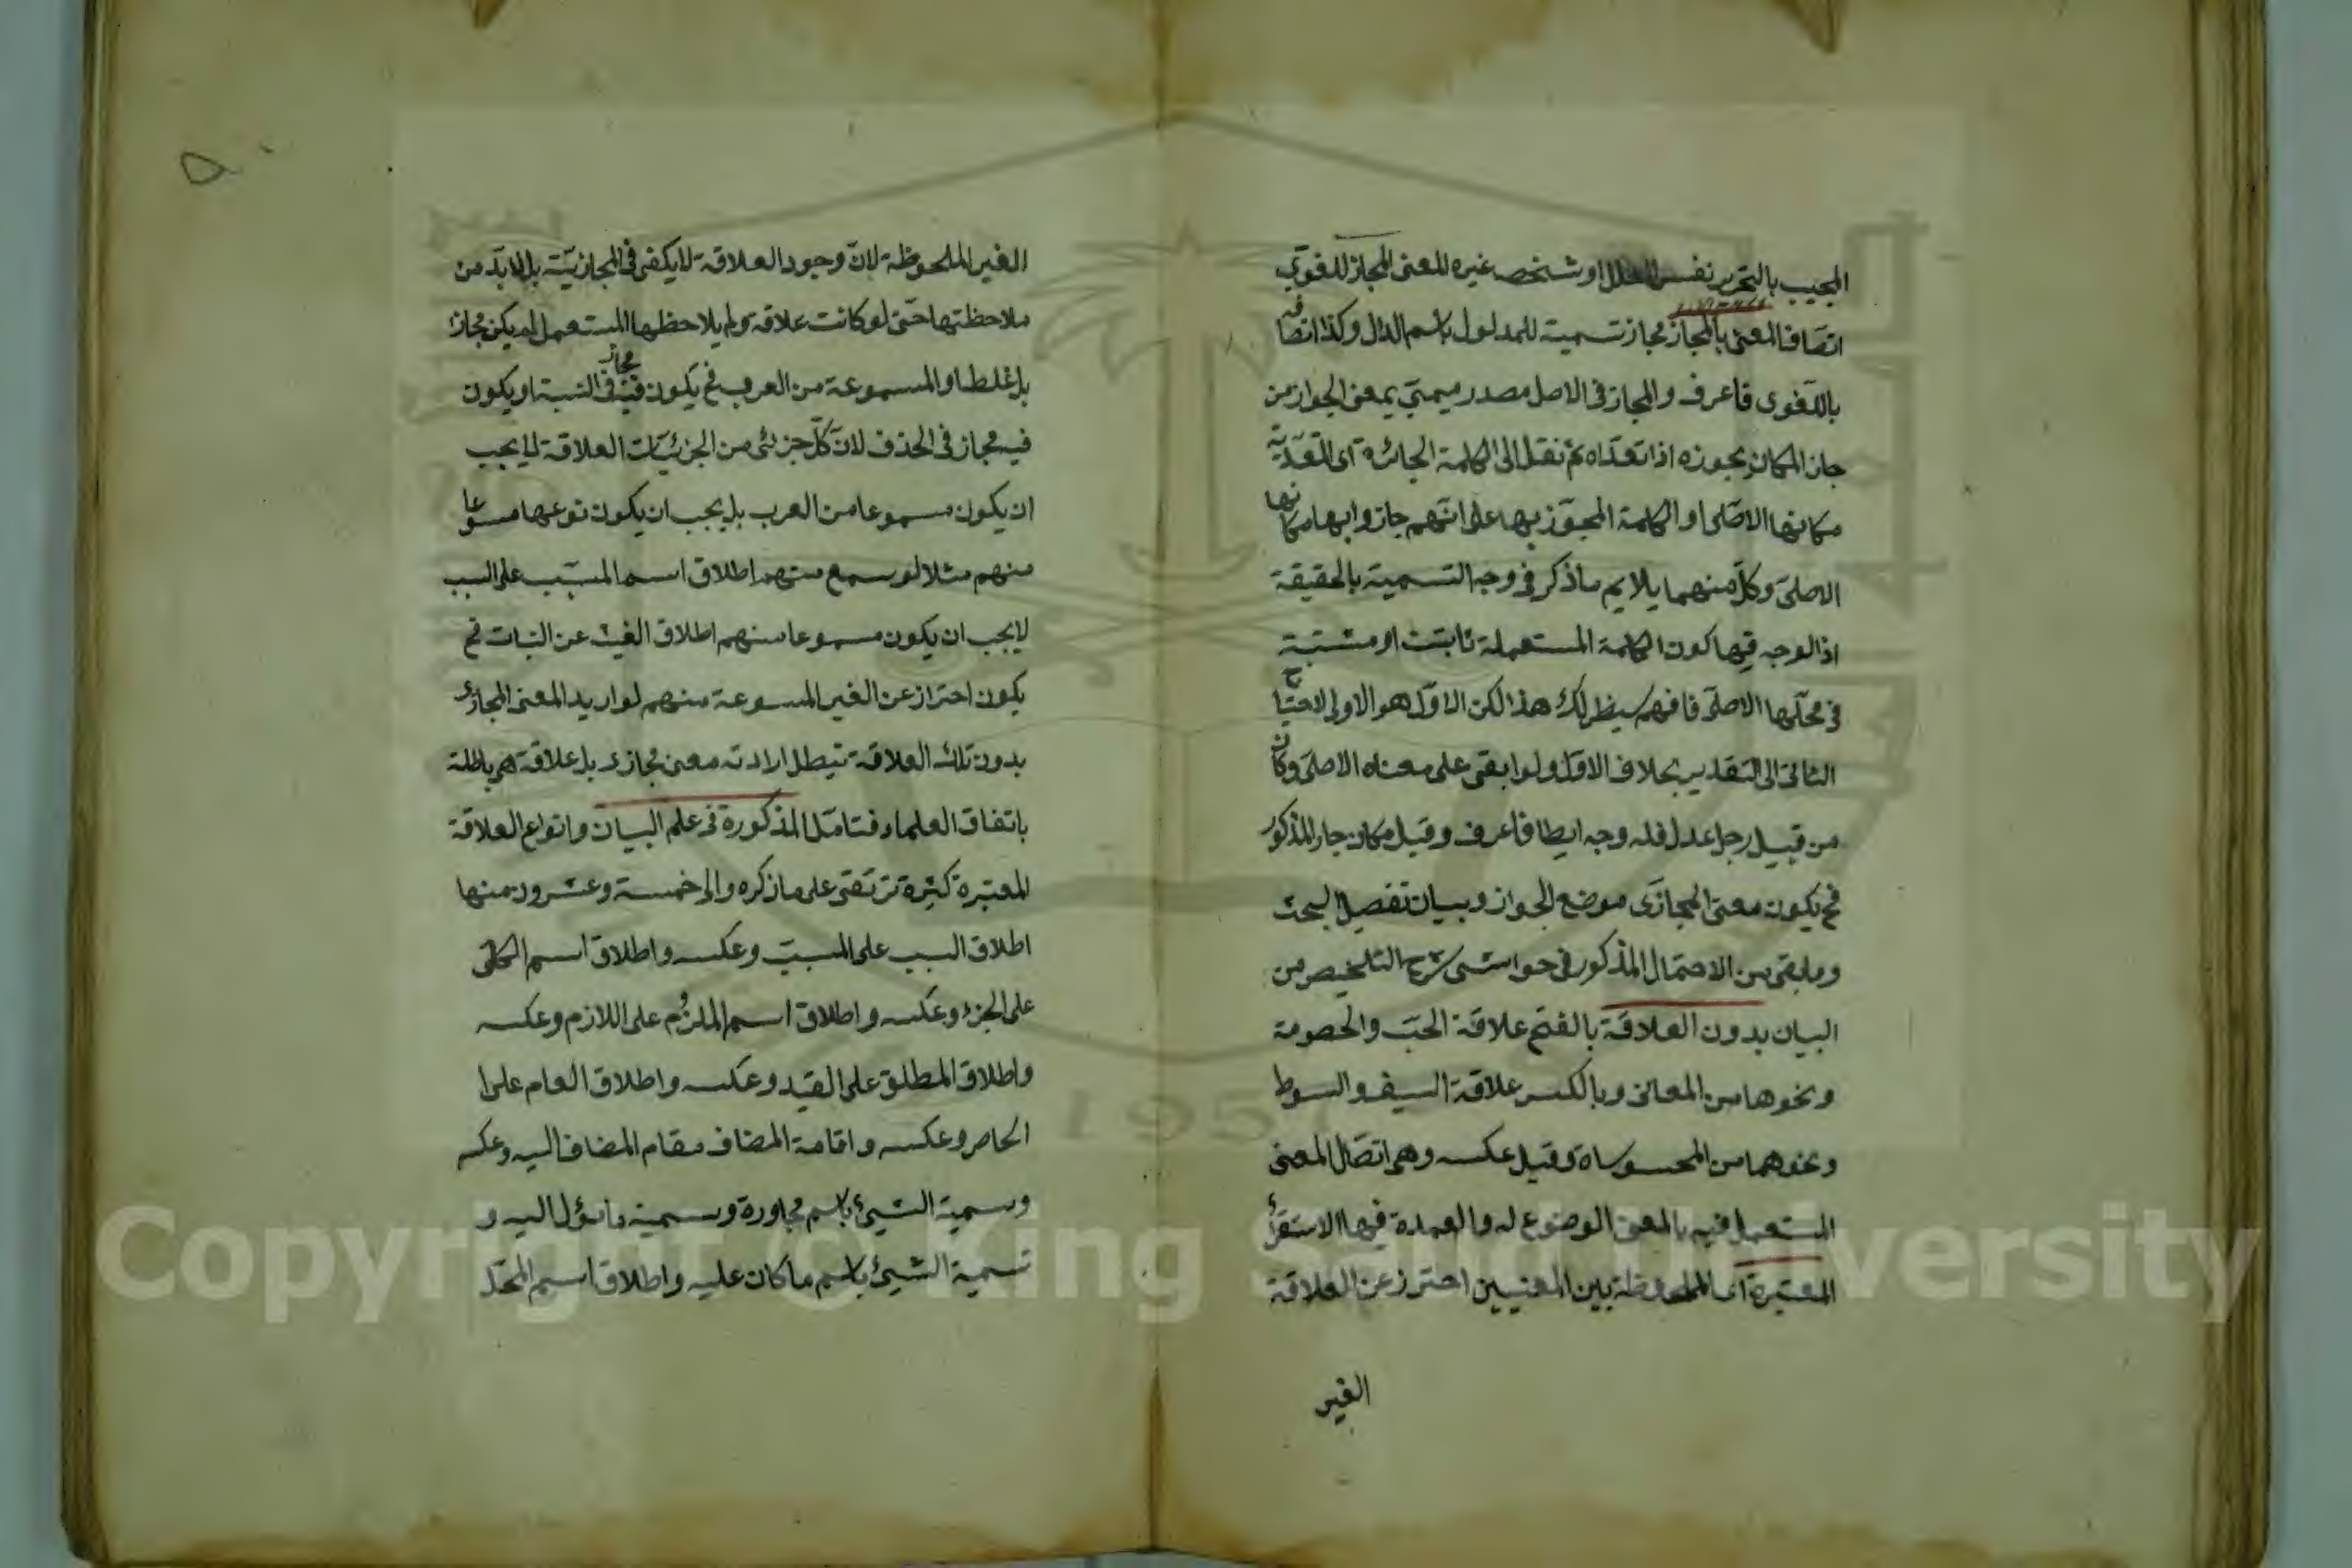 المجيب بالتحرير نفس المعلل او شخص غيره المعنى المجاز لدقوي
اتصاف المعنى بالمجاز مجاز تسمية للمدلول باسم الدال وكذا اتصافه
باللغوى فاعرف والمجاز فى الاصل مصدر ميمى بمعنى الجواز من
جاز المكان يجوزه اذا تعداه ثم نقل الى الكلمة الجائزة اى المتعدية
مكانها الاصلى او الكلمة المجوز بها على انهم جازوا بها مكانها
الاصلى وكل منهما يلايم ما ذكر فى وجه التسمية بالحقيقة
اذ الوجه فيها كون الكلمة المستعملة ثابتت او مثبتة
فى محلها الاصلى فافهم سيظر لك هذا لكن الاول هو الاولى لاحتياج
الثانى الى التقدير بخلاف الاول ولو ابقى على معناه الاصلى وكان
من قبيل رجل عدل فله وجه ايضا فاعرف وقيل مكان جاز المذكور
فح يكون معنى المجازى موضع الجواز وبيان تفصيل البحث
وما بقى من الاحتمال المذكور فى حواشى شرح التلخيص من
البيان بدون العلاقة بالفتح علاقة الحب والخصومة
ونحوها من المعانى وبالكسر علاقة السيف والسوط
ونحوهما من المحسوساة وقيل عكسه وهى اتصال المعنى
المستعمل فيه بالمعنى الموضوع له والعمدة فيها الاستقرأ
المعتبرة اى الملحوظة بين المعنيين احترز عن العلاقة
الغير
الغير الملحوظة لان وجود العلاقة لا يكفى فى المجازية بل لابد من
ملاحظتها حتى لو كانت علاقة ولم يلاحظها المستعمل لم يكن مجازا
بل غلطا او المسموعة من العرب فح يكون فيه مجاز فى النسبة او يكون
فيه مجاز فى الحذف لان كل جزئى من الجزئيات العلاقة لا يجب
ان يكون مسموعا من العرب بل يجب ان يكون نوعها مسموعا
منهم مثلا لو سمع منهم اطلاق اسم المسبب على السبب
لا يجب ان يكون مسموعا منهم اطلاق الغيث عن النبات فح
يكون احتراز عن الغير المسموعة منهم لو اريد المعنى المجازى
بدون تلك العلاقة تبطل ارادته معنى مجازى بل علاقة هى باطلة
باتفاق العلماء فتامل المذكورة فى علم البيان وانواع العلاقة
المعتبرة كثيرة ترتقى على ما ذكره والى خمسة وعشرون منها
اطلاق السبب على المسبب وعكسه واطلاق اسم الكل
على الجزء وعكسه واطلاق اسم الملزوم على اللازم وعكسه
واطلاق المطلق على المقيد وعكسه واطلاق العام على ا
الخاص وعكسه واقامة المضاف مقام المضاف اليه وعكسه
وسمية الشيئ باسم مجاورة وسمية ما يؤل اليه و
تسمية الشيئ باسم ما كان عليه واطلاق اسم المحل
Copyright © King Saud University
1957